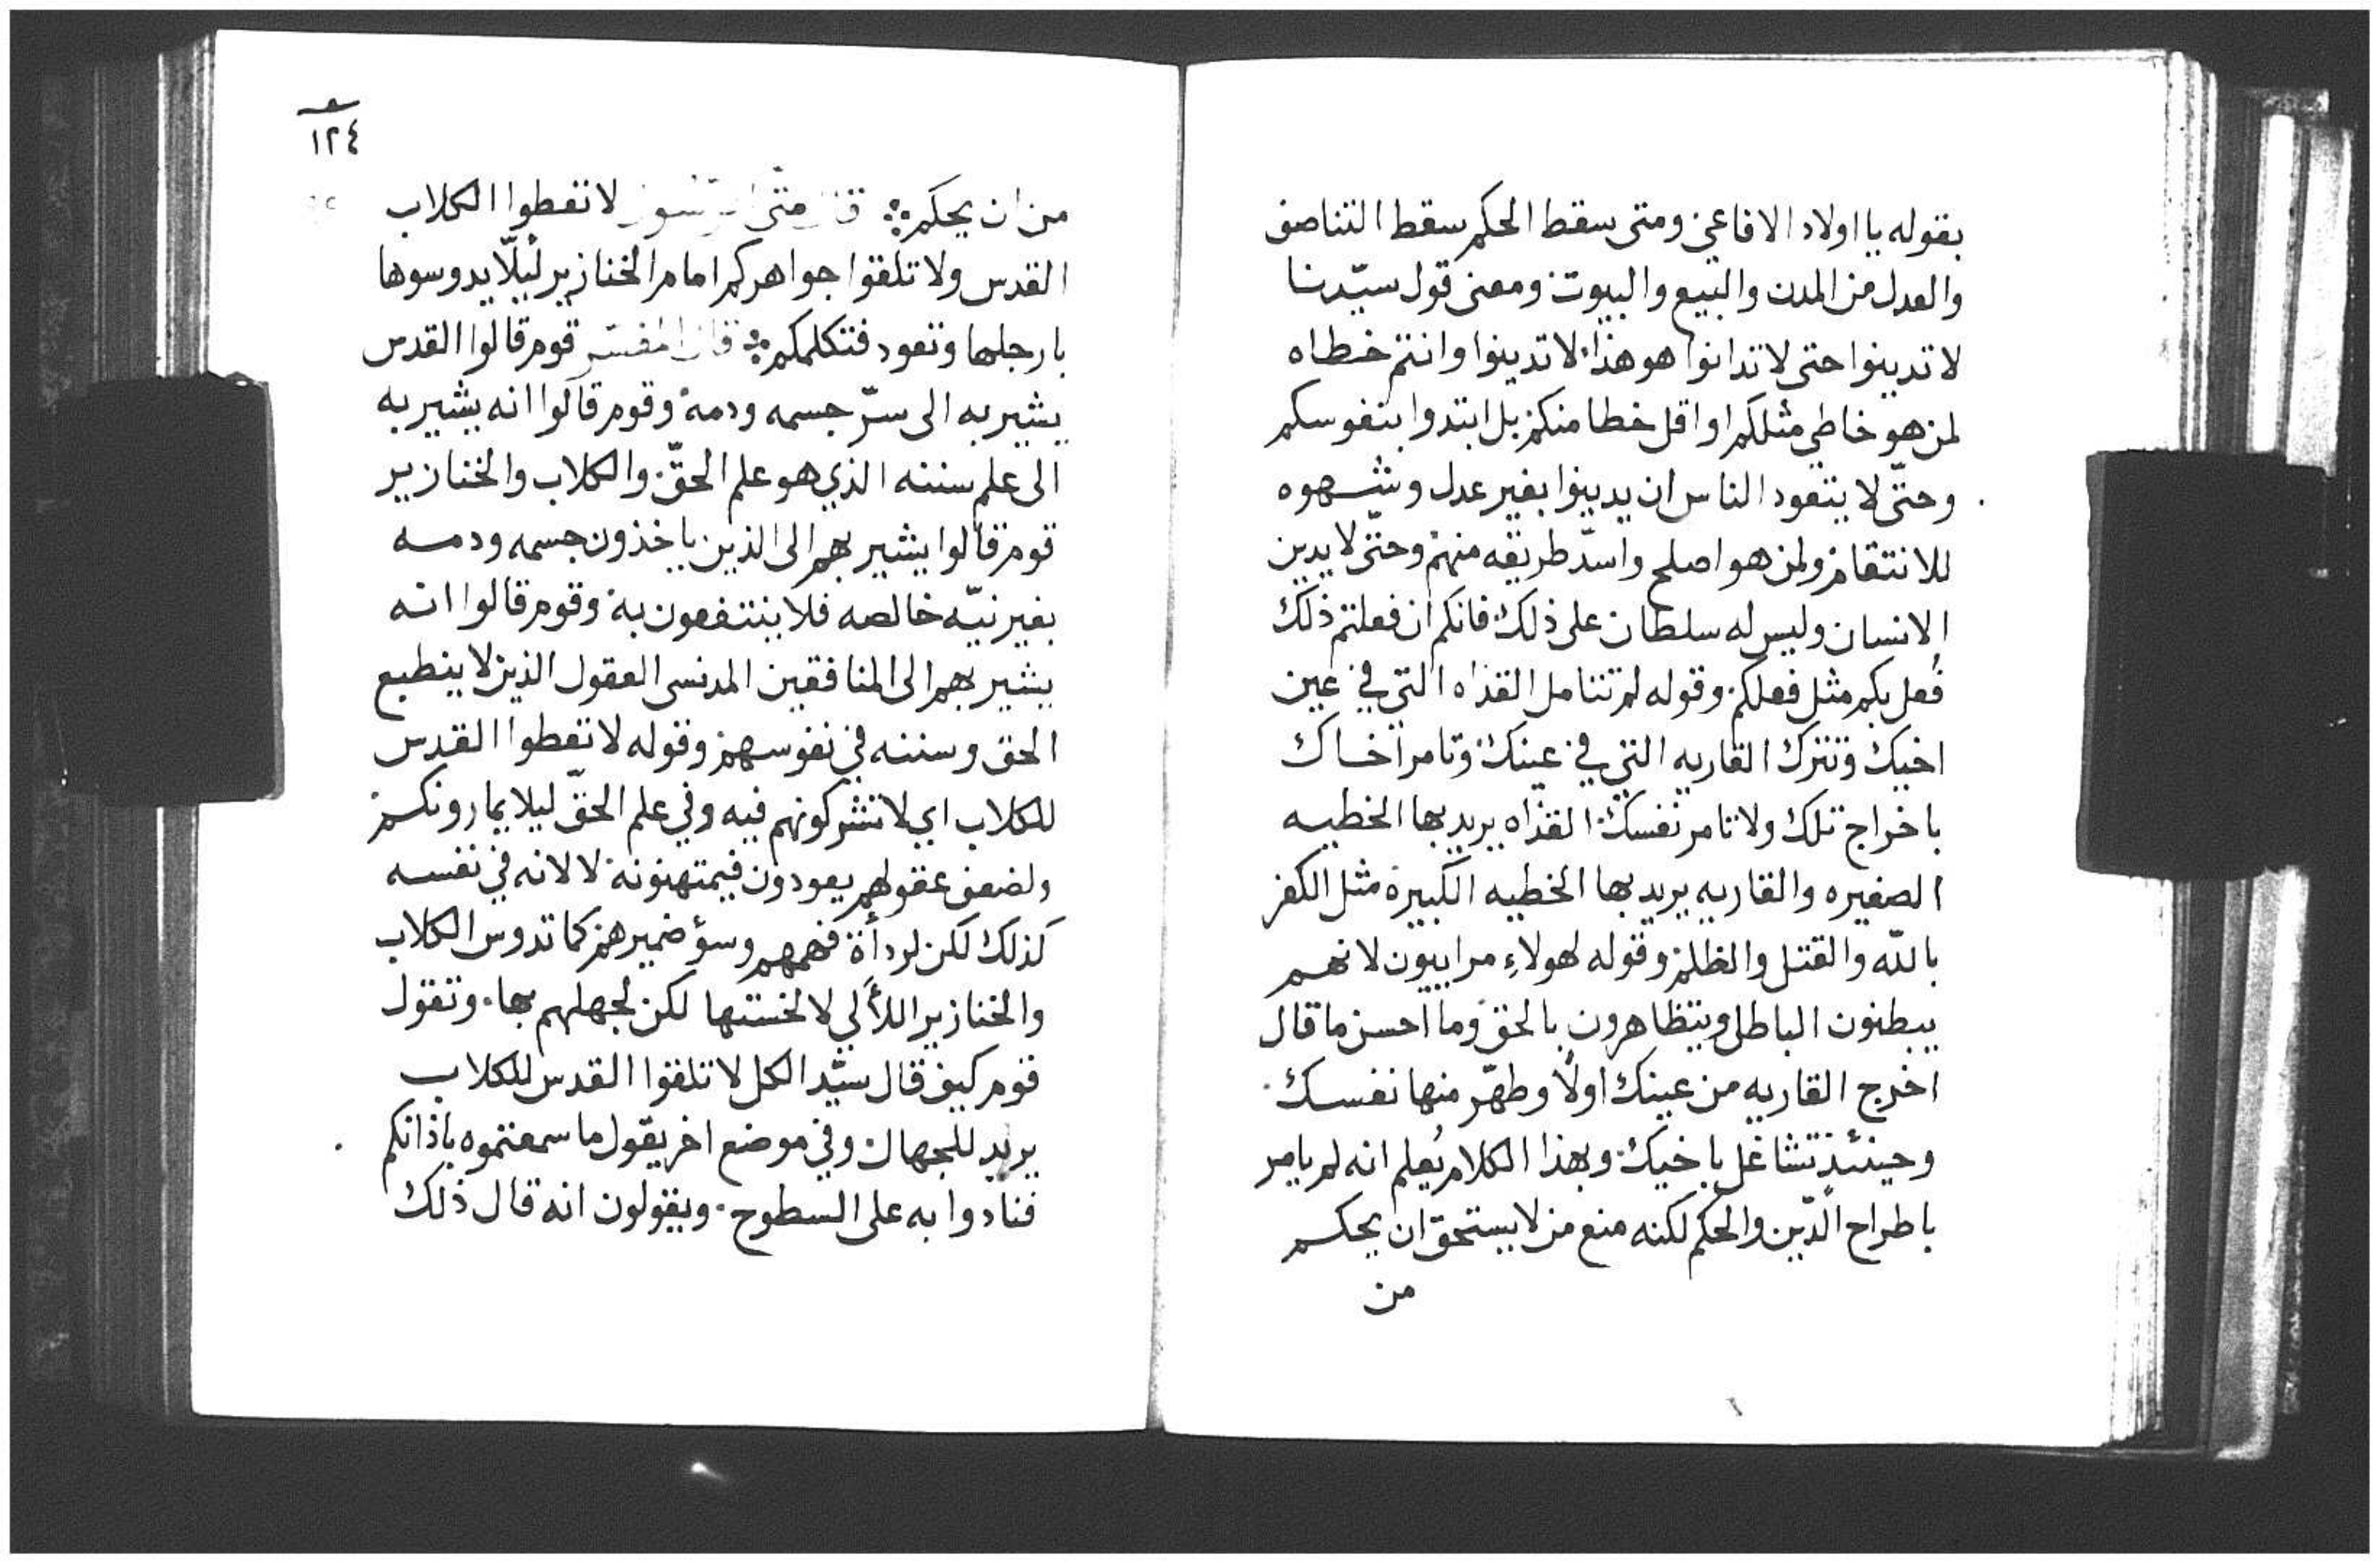 بقوله يا اولاد الافاعي ومتى سقط الحكم سقط التناصف
والعدل من المدن والبيع والبيوت ومعنى قول سيّدنا
لا تدينوا حتى لا تدانوا هو هذا لا تدينوا وانتم خطاه
لمن هو خاطي مثلكم او اقل خطا منكم بل ابتدوا بنفوسكم
وحتّى لا يتعود الناس ان يدينوا بغير عدل وشهوه
للانتقام ولمن هو اصلح واسدّ طريقه منهم وحتّى لا يدين
الانسان وليس له سلطان على ذلك فانكم ان فعلتم ذلك
فُعل بكم مثل فعلكم وقوله لم تتامل القذاه التي في عين
اخيك وتترك القاريه التي في عينك وتامر اخاك
باخراج تلك ولا تامر نفسك القذاه يريد بها الخطيه
الصغيره والقاريه يريد بها الخطيه الكبيرة مثل الكفر
بالله والقتل والظلم وقوله لهولاءِ مراييون لانهم
يبطنون الباطل ويتظاهرون بالحق وما احسن ما قال
اخرج القاريه من عينك اولًا وطهّر منها نفسك
وحينئذ تشاغل باخيك وبهذا الكلام يُعلم انه لم يامر
باطراح الدّين والحكم لكنه منع من لا يستحق ان يحكم
من
١٢٤
من ان يحكم قال متّى لا تعطوا الكلاب
القدس ولا تلقوا جواهركم امام الخنازير ليلّا يدوسوها
بارجلها وتعود فتكلمكم قال المفسّر قوم قالوا القدس
يشير به الى سرّ جسمه ودمه وقوم قالوا انه يشير به
الى علم سننه الذي هو علم الحقّ والكلاب والخنازير
قوم قالوا يشير بهم الى الذين ياخذون جسمه ودمه
بغير نيّه خالصه فلا ينتفعون به وقوم قالوا انه
يشير بهم الى المنافقين المدنسى العقول الذين لا ينطبع
الحق وسننه في نفوسهم وقوله لا تعطوا القدس
للكلاب اي لا تشركونهم فيه وفي علم الحقّ ليلا يمارونكم
ولضعف عقولهم يعودون فيمتهنونه لا لانه في نفسه
كذلك لكن لردأة فهمهم وسؤ ضميرهم كما تدوس الكلاب
والخنازير اللألي لا لخستها لكن لجهلهم بها وتقول
قوم كيف قال سيّد الكل لا تلقوا القدس للكلاب
يريد للجهال وفي موضع اخر يقول ما سمعتموه باذانكم
فنادوا به على السطوح ويقولون انه قال ذلك